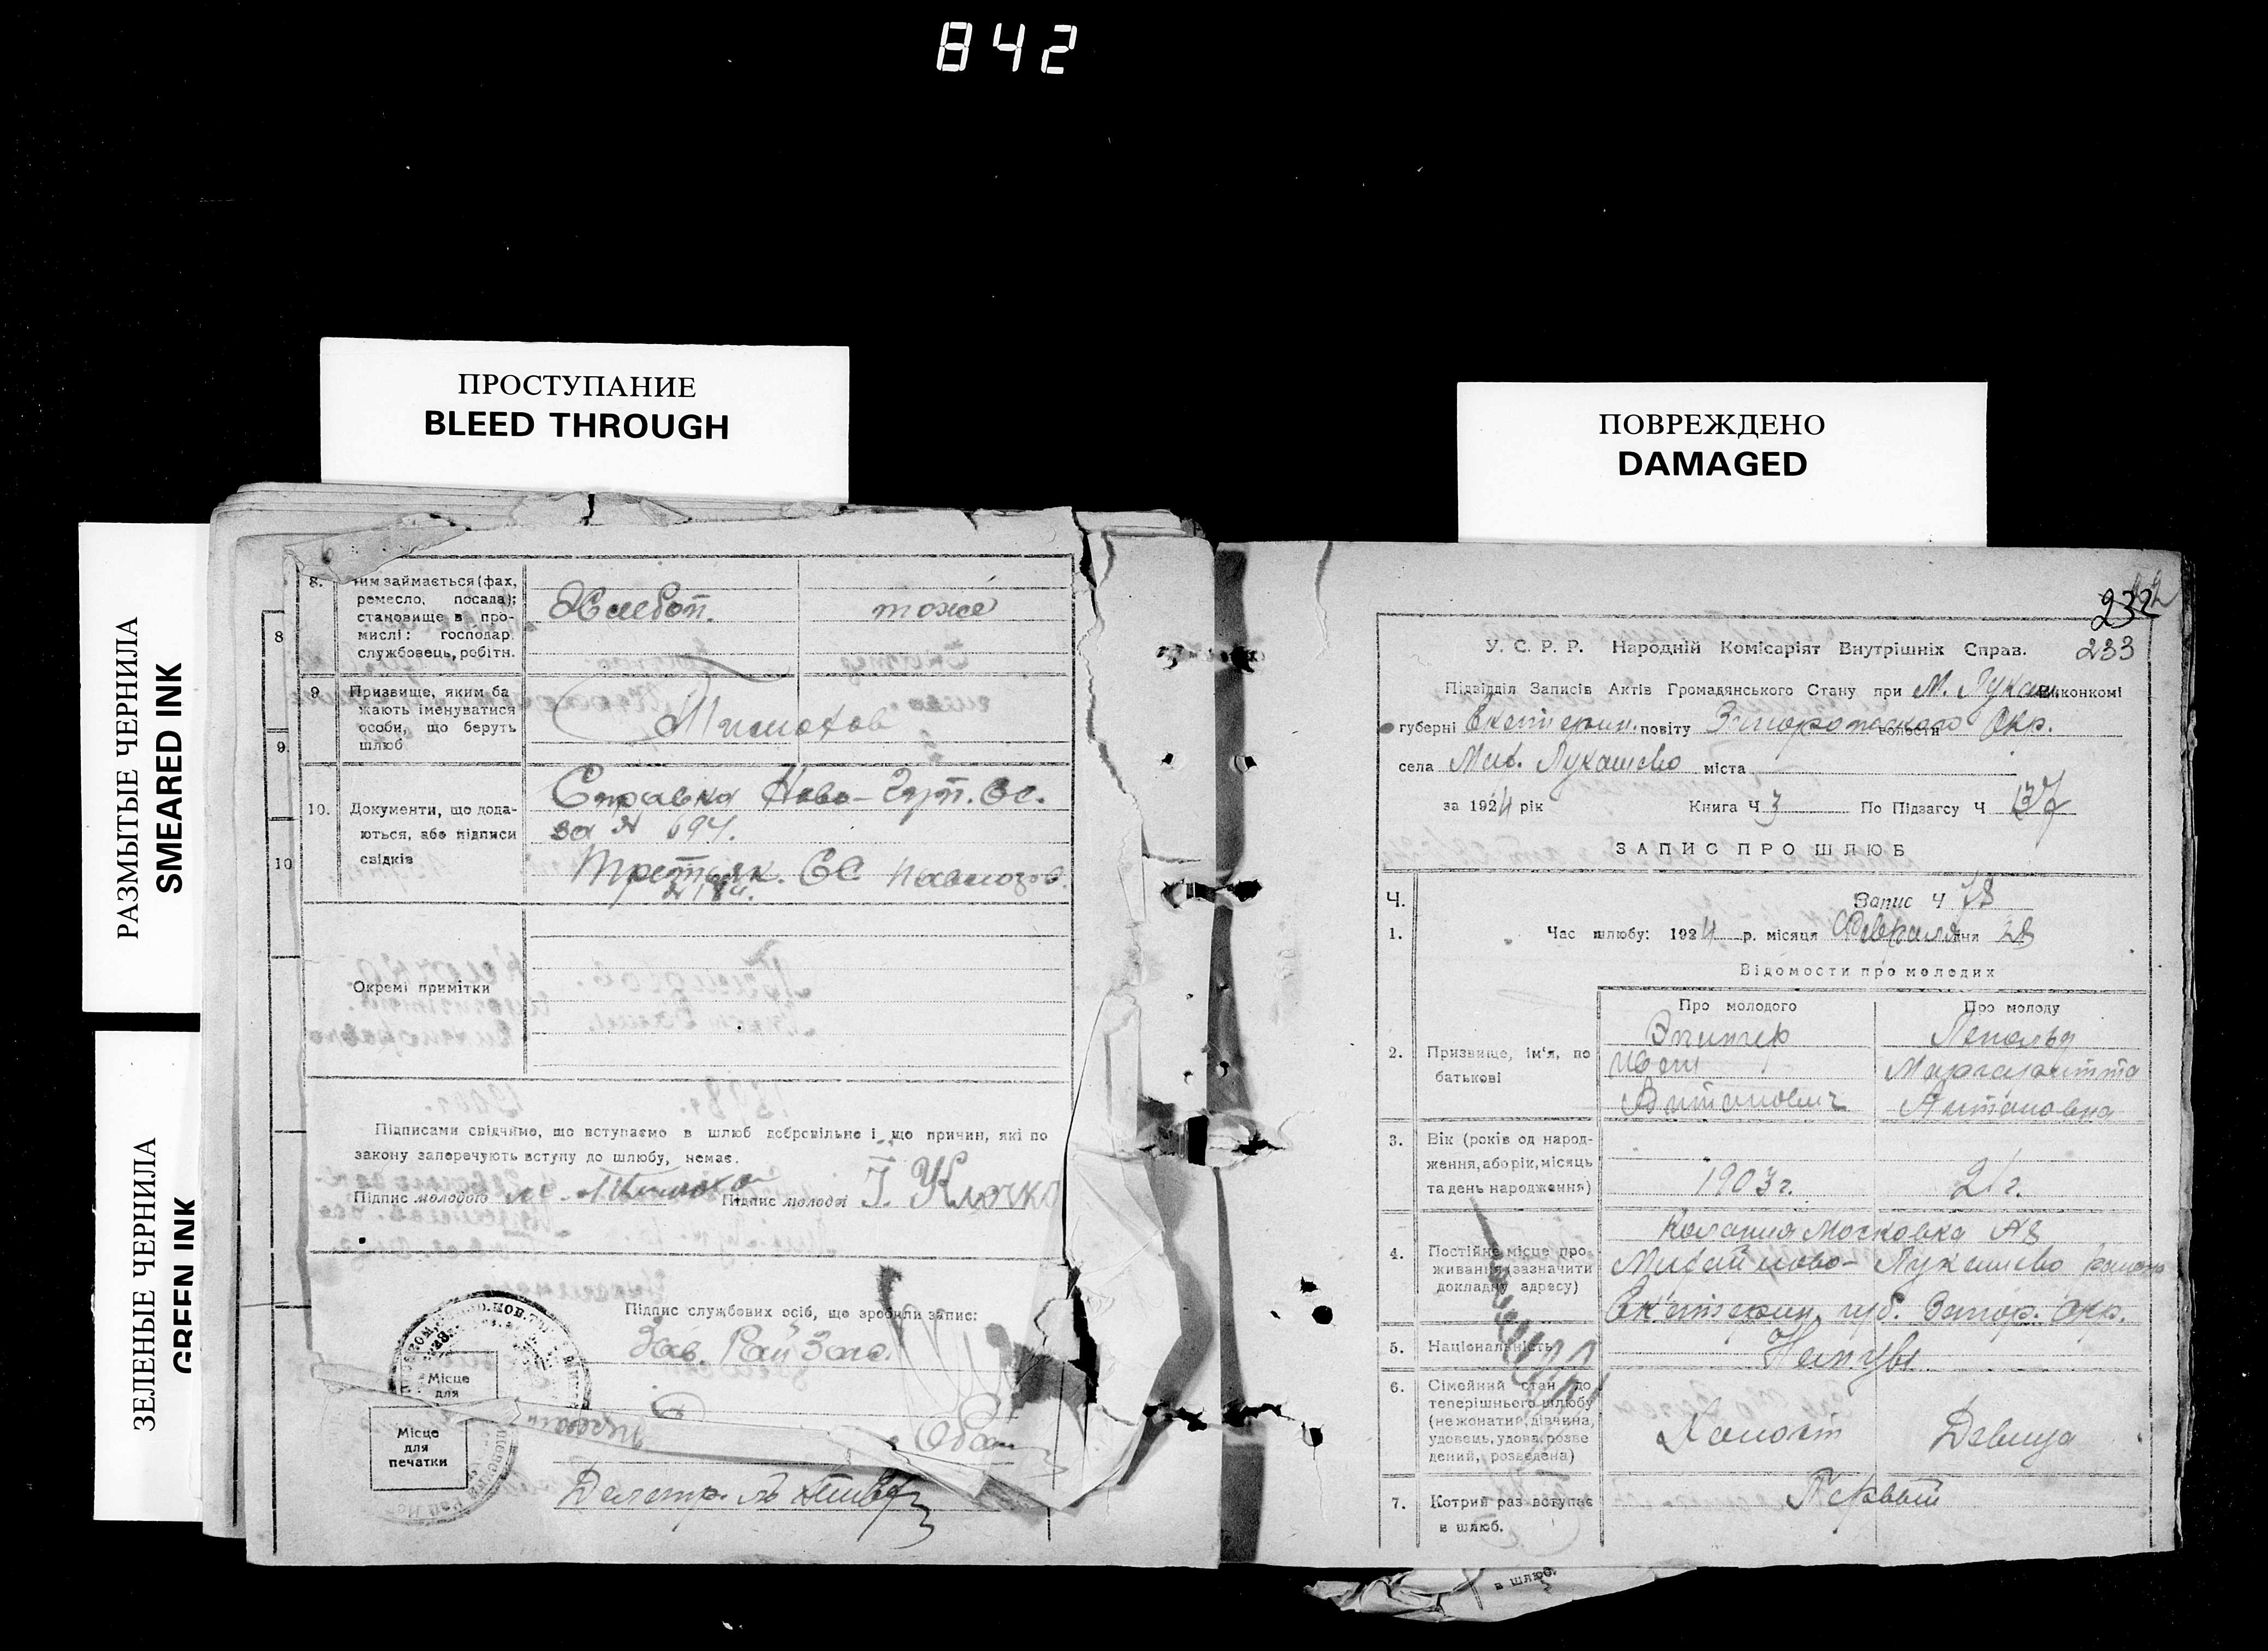 842
ПРОСТУПАНИЕ
BLEED THROUGH
ПОВРЕЖДЕНО
DAMAGED
РАЗМЫТЫЕ ЧЕРНИЛА
SMEARED INK
ЗЕЛЕНЫЕ ЧЕРНИЛА
GREEN INK
8
9.
10
8. чим займається (фах,
ремесло, посада);
становище в про-
мислі: господар.
службовець, робітн.
Хлебоп. тоже
9 Призвище, яким ба
жають іменуватися
особи, що беруть
шлюб
10. Документи, що дода-
ються, або підписи
свідків
Справка Ново-Гуп. СС.
за № 694.
Третьяк. СС Павлогр.
Окремі примітки
Підписами свідчимо, що вступаємо в шлюб добровільно і що причин, які по
закону заперечують вступу до шлюбу, немає.
Підпис молодого Підпис молодої І. Клочко
Підпис службових осіб, що зробили запис:
Зав. Рай Загс.
Місце
для
Місце
для
печатки
232
233
У. С. Р. Р. Народній Комісаріят Внутрішніх Справ.
Підвідділ Записів Актів Громадянського Стану при М. Лукаш. виконкомі
губерні Екатерин. повіту Запорожского волости Окр.
села Мих. Лукашево міста
за 1924 рік Книга Ч 3 По Підзагсу Ч 137
ЗАПИС ПРО ШЛЮБ
Ч. Запис Ч 18
1. Час шлюбу: 1924 р. місяця Февраля дня 28
Відомости про молодих
Про молодого Про молоду
2. Призвище, ім'я, по
батькові
Иван Маргаритта
Антонович Антоновна
3. Вік (років од народ-
ження, або рік, місяць
та день народження)
1903 г. 21 г.
4. Постійне місце про-
живання (зазначити
докладну адресу)
Колония Московка № 8
Михайлово-Лукашево района
Екатерин. губ. Запор. Окр.
5. Національність
Немцы
6. Сімейний стан до
теперішнього шлюбу
(нежонатий, дівчина,
удовець, удова, розве
дений, розведена)
Холост Девица
7. Котрий раз вступає
в шлюб.
Первый
в шлюб.